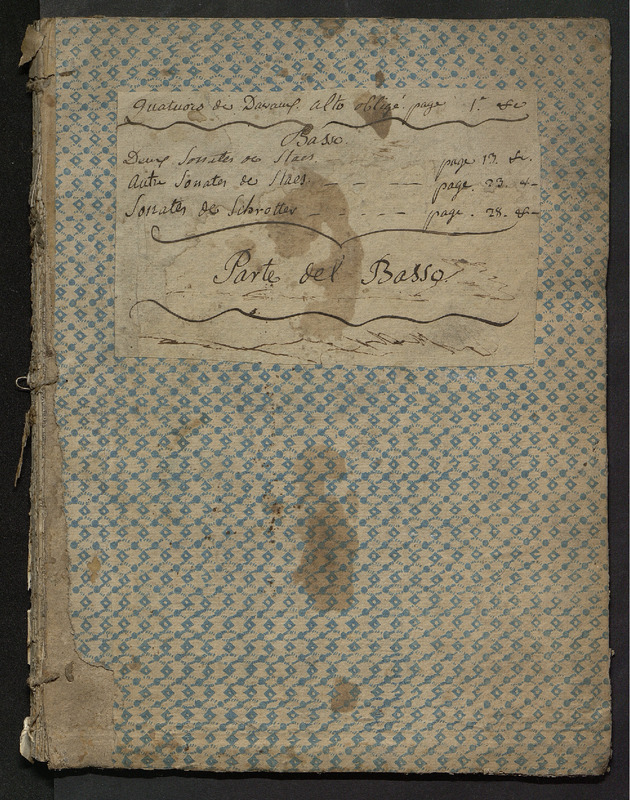 Quatuors de Davaux. Alto obligé. page 1.r &c
Basso.
Deux Sonates de Staes page 17. &c.
Autre Sonates de Staes. — — — page. 23. &—
Sonates de Schrotter — — — — page. 28. &—
Parte del Basso.